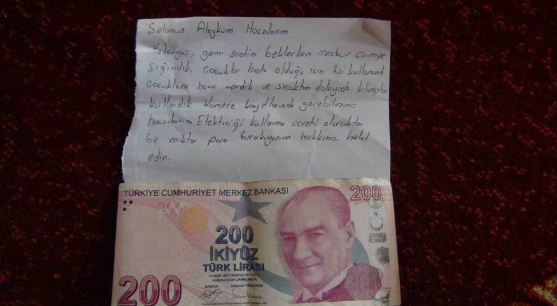 Selamun Aleyküm Hocalarım
Yolcuyuz, gemi saatini beklerken mecbur camiye
sığındık. Çocuklar hasta olduğu için fişi kullanarak
çocuklara hava verdik ve sıcaktan dolayıda klimaları
kullandık. Kamera kayıtlarında görebilirsiniz
hocalarım. Elektiriği kullanma ücreti olarakta
bir miktar para bırakıyorum hakkınızı helal
edin.
TÜRKİYE CUMHURİYET MERKEZ BANKASI
200
200
İKİYÜZ
TÜRK LİRASI
200